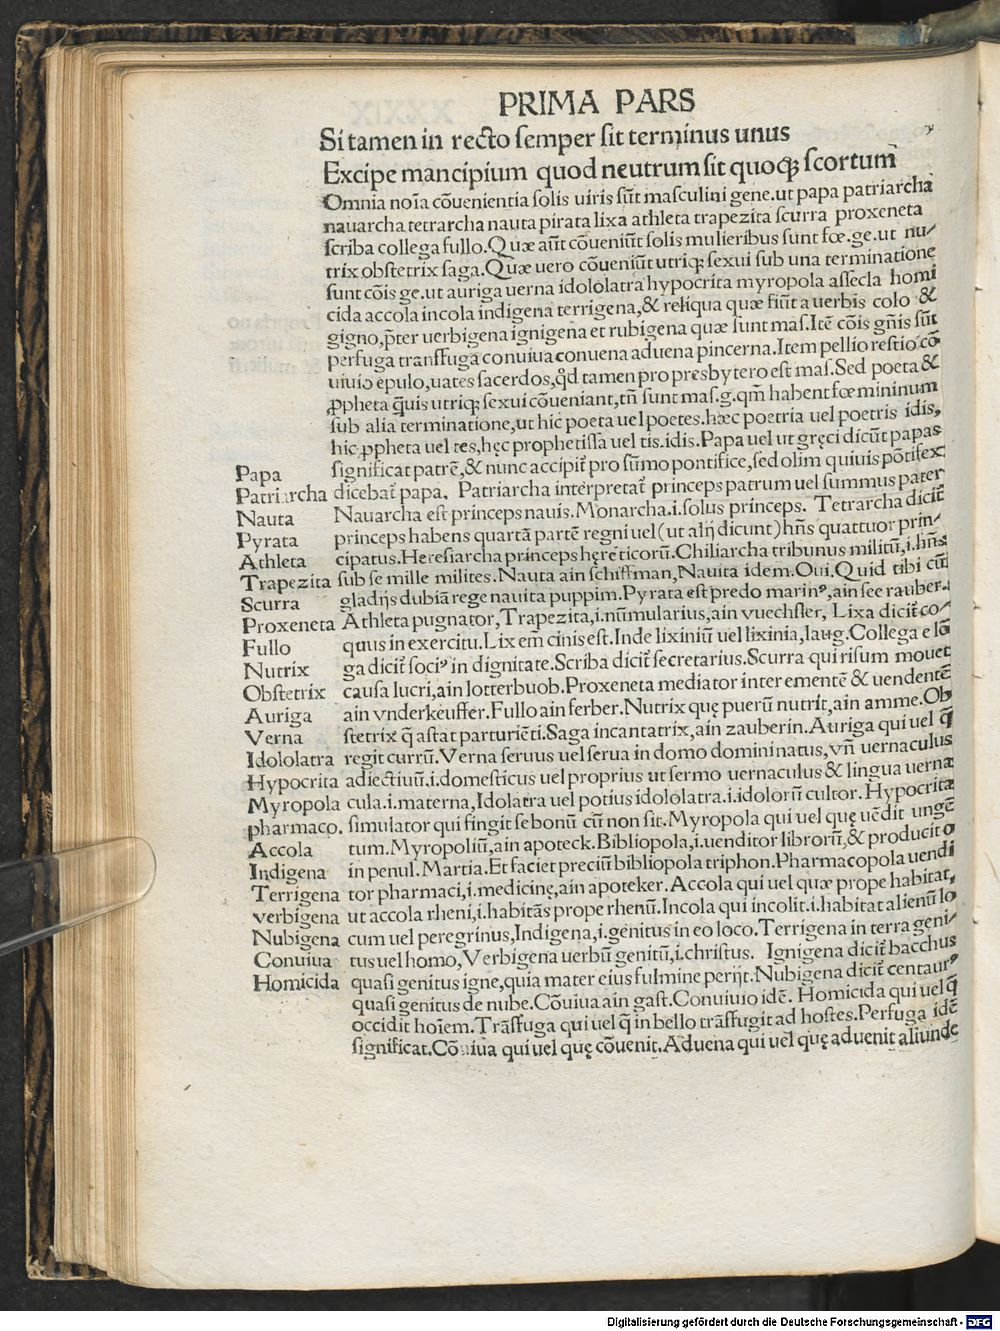 PRIMA PARS
Si tamen in recto semper sit terminus unus
Excipe mancipium quod neutrum sit quoqꝫ scortum
Omnia noīa cōuenientia solis uiris sūt masculini gene.ut papa patriarcha
nauarcha tetrarcha nauta pirata lixa athleta trapezita scurra proxeneta
scriba collega fullo.Quæ aūt cōueniūt solis mulieribus sunt fœ.ge.ut nu/
trix obstetrix saga.Quæ uero cōueniūt utriqꝫ sexui sub una terminatione
sunt cōis ge.ut auriga uerna idololatra hypocrita myropola assecla homi
cida accola incola indigena terrigena,& reliqua quæ fiūt a uerbis colo &
gigno,p̄ter uerbigena ignigena et rubigena quæ sunt mas.Itē cōis gn̄is sūt
perfuga transfuga conuiua conuena aduena pincerna.Item pellio restio cō
uiuio epulo,uates sacerdos,qd̄ tamen pro presbytero est mas.Sed poeta &
ꝓpheta q̄uis utriqꝫ sexui cōueniant,tn̄ sunt mas.g.qm̄ habent fœmininum
sub alia terminatione,ut hic poeta uel poetes.hæc poetria uel poetris idis,
hic ꝓpheta uel tes,hęc prophetissa uel tis.idis.Papa uel ut gręci dicūt papas
Papa significat patrē,& nunc accipit̄ pro sūmo pontifice,sed olim quiuis pōtifex
Patriarcha dicebat̄ papa. Patriarcha interpretat̄ princeps patrum uel summus pater
Nauta Nauarcha est princeps nauis.Monarcha.i.solus princeps. Tetrarcha dicit̄
Pyrata princeps habens quartā partē regni uel(ut alij dicunt)hn̄s quattuor prin/
Athleta cipatus.Heresiarcha princeps hęreticorū.Chiliarcha tribunus militū,i.hn̄s
Trapezita sub se mille milites.Nauta ain schiffman,Nauita idem.Oui.Quid tibi cū
Scurra gladijs dubiā rege nauita puppim.Pyrata est predo marinꝰ,ain see rauber.
Proxeneta Athleta pugnator,Trapezita,i.nūmularius,ain vuechsler, Lixa dicit̄ co/
Fullo quus in exercitu.Lix em̄ cinis est.Inde lixiniū uel lixinia,laug.Collega e lō
Nutrix ga dicit̄ sociꝰ in dignitate.Scriba dicit̄ secretarius.Scurra qui risum mouet
Obstetrix causa lucri,ain lotterbuob.Proxeneta mediator inter ementē & uendentē
Auriga ain vnderkeuffer.Fullo ain ferber.Nutrix quę puerū nutrit,ain amme.Ob
Verna stetrix q̄ astat parturiēti.Saga incantatrix,ain zauberin.Auriga qui uel q̄
Idololatra regit currū.Verna seruus uel serua in domo domini natus,vn̄ uernaculus
Hypocrita adiectiuū.i.domesticus uel proprius ut sermo uernaculus & lingua uerna
Myropola cula.i.materna,Idolatra uel potius idololatra.i.idolorū cultor.Hypocrita
pharmaco. simulator qui fingit se bonū cū non sit.Myropola qui uel quę uēdit ungē
Accola tum.Myropoliū,ain apoteck.Bibliopola,i.uenditor librorū,& producit o
Indigena in penul.Martia.Et faciet preciū bibliopola triphon.Pharmacopola uendi
Terrigena tor pharmaci,i.medicinę,ain apoteker.Accola qui uel quæ prope habitat,
verbigena ut accola rheni,i.habitās prope rhenū.Incola qui incolit.i.habitat alienū lo
Nubigena cum uel peregrinus,Indigena,i.genitus in eo loco.Terrigena in terra geni/
Conuiua tus uel homo,Verbigena uerbū genitū,i.christus. Ignigena dicit̄ bacchus
Homicida quasi genitus igne,quia mater eius fulmine perijt.Nubigena dicit̄ centaurꝰ
quasi genitus de nube.Cōuiua ain gast.Conuiuio idē. Homicida qui uel q̄
occidit hoīem.Trāsfuga qui uel q̄ in bello trāsfugit ad hostes.Perfuga idē
significat.Cōuiua qui uel quę cōuenit.Aduena qui uel quę aduenit aliunde
Digitalisierung gefördert durch die Deutsche Forschungsgemeinschaft - DFG